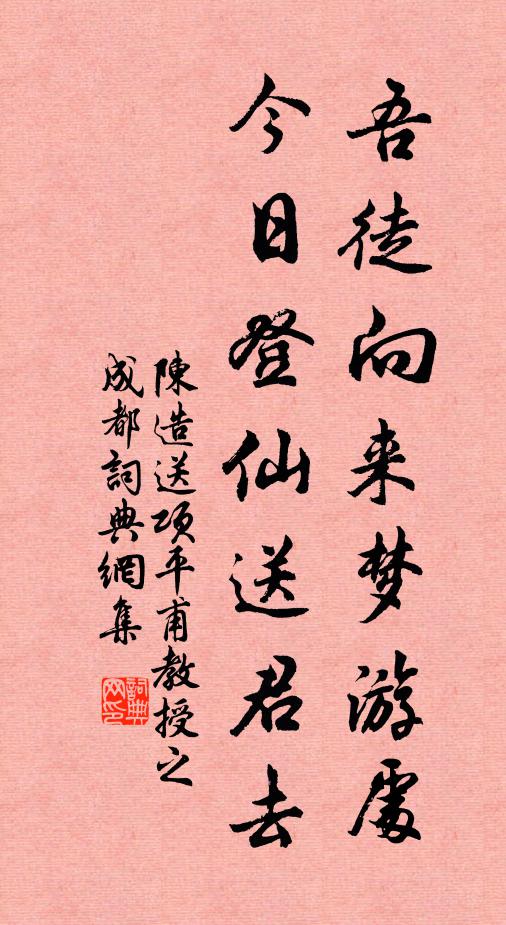 吾徒向来梦游處
今日登仙送君去
陳造送项平甫教授之
成都詞典網集
詞典网印